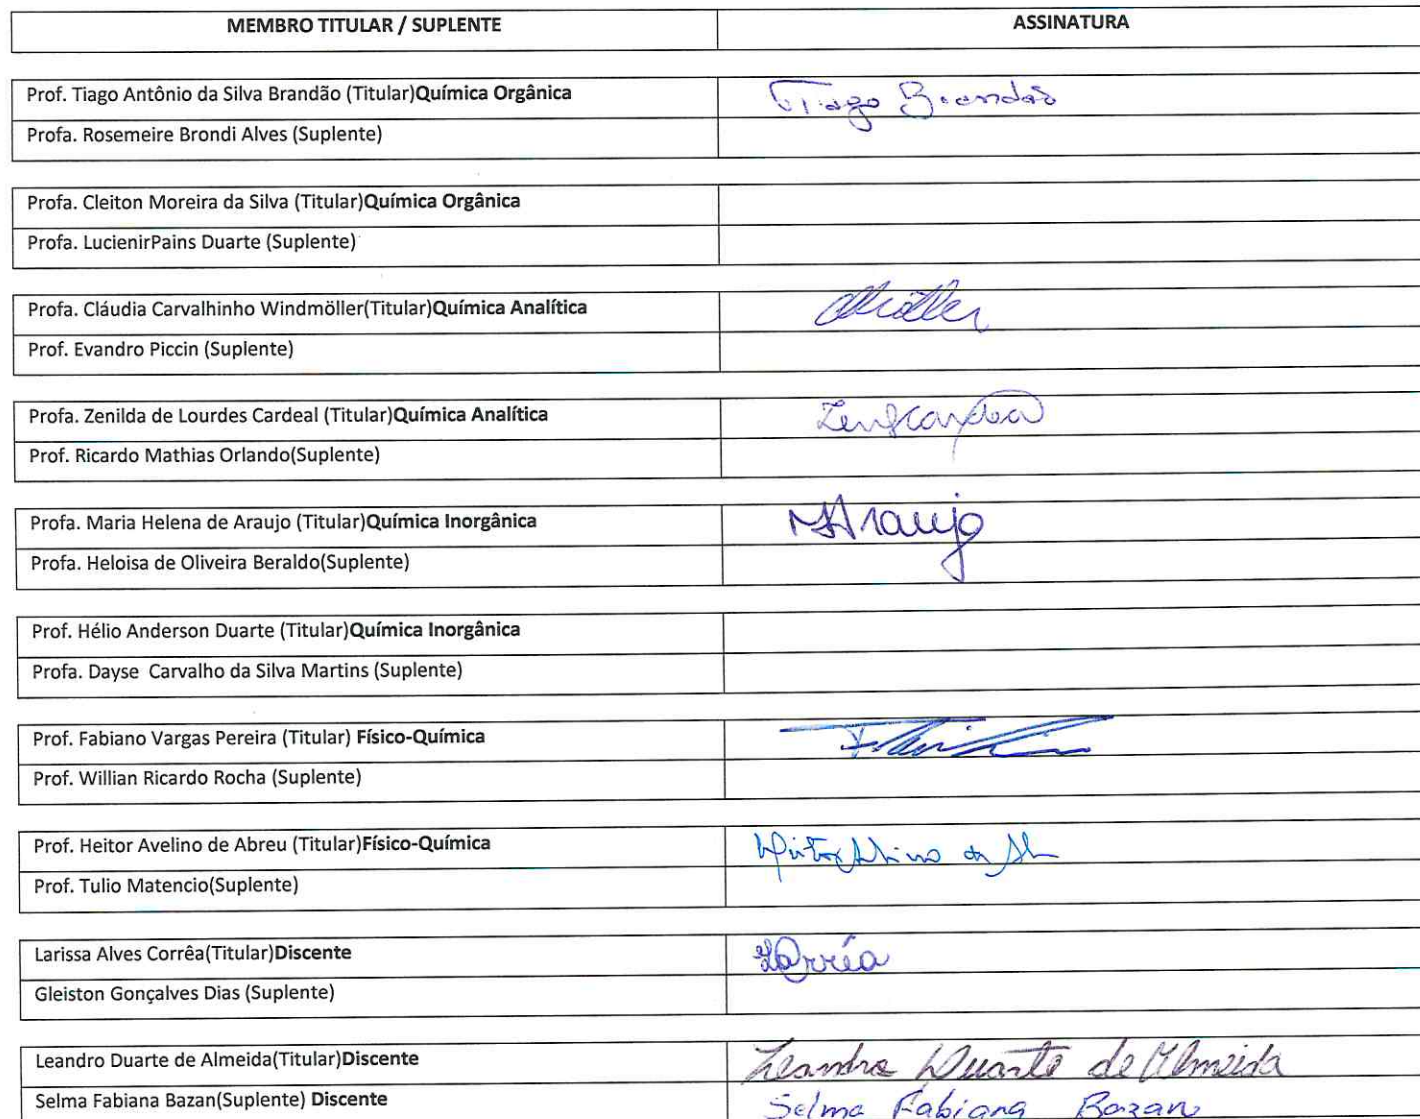 MEMBRO TITULAR / SUPLENTE ASSINATURA
Prof. Tiago Antônio da Silva Brandão (Titular)Química Orgânica Tiago Brandão
Profa. Rosemeire Brondi Alves (Suplente)
Profa. Cleiton Moreira da Silva (Titular)Química Orgânica
Profa. LucienirPains Duarte (Suplente)
Profa. Cláudia Carvalhinho Windmöller(Titular)Química Analítica
Prof. Evandro Piccin (Suplente)
Profa. Zenilda de Lourdes Cardeal (Titular)Química Analítica
Prof. Ricardo Mathias Orlando(Suplente)
Profa. Maria Helena de Araujo (Titular)Química Inorgânica MHAraujo
Profa. Heloisa de Oliveira Beraldo(Suplente)
Prof. Hélio Anderson Duarte (Titular)Química Inorgânica
Profa. Dayse Carvalho da Silva Martins (Suplente)
Prof. Fabiano Vargas Pereira (Titular) Físico-Química
Prof. Willian Ricardo Rocha (Suplente)
Prof. Heitor Avelino de Abreu (Titular)Físico-Química
Prof. Tulio Matencio(Suplente)
Larissa Alves Corrêa(Titular)Discente
Gleiston Gonçalves Dias (Suplente)
Leandro Duarte de Almeida(Titular)Discente Leandro Duarte de Almeida
Selma Fabiana Bazan(Suplente) Discente Selma Fabiana Bazan